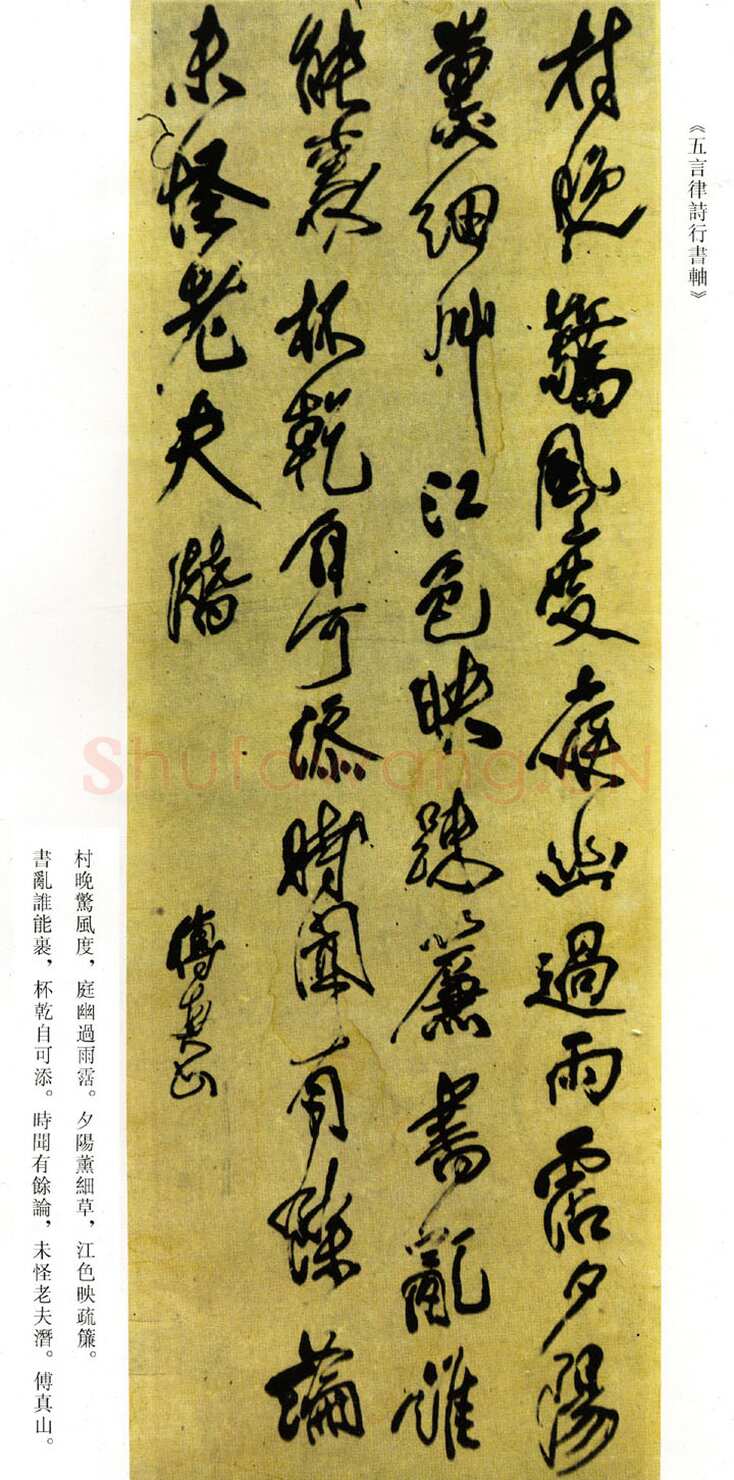 《五言律詩行書軸》
村晚驚風度庭幽過雨霑夕陽
薰細艸江色映疎簾書亂誰
能裹杯乾自可添時聞有餘論
未怪老夫潛
傅真山
村晚驚風度，庭幽過雨霑。夕陽薰細草，江色映疏簾。
書亂誰能裹，杯乾自可添。時聞有餘論，未怪老夫潛。傅真山。
Shufawang.CN